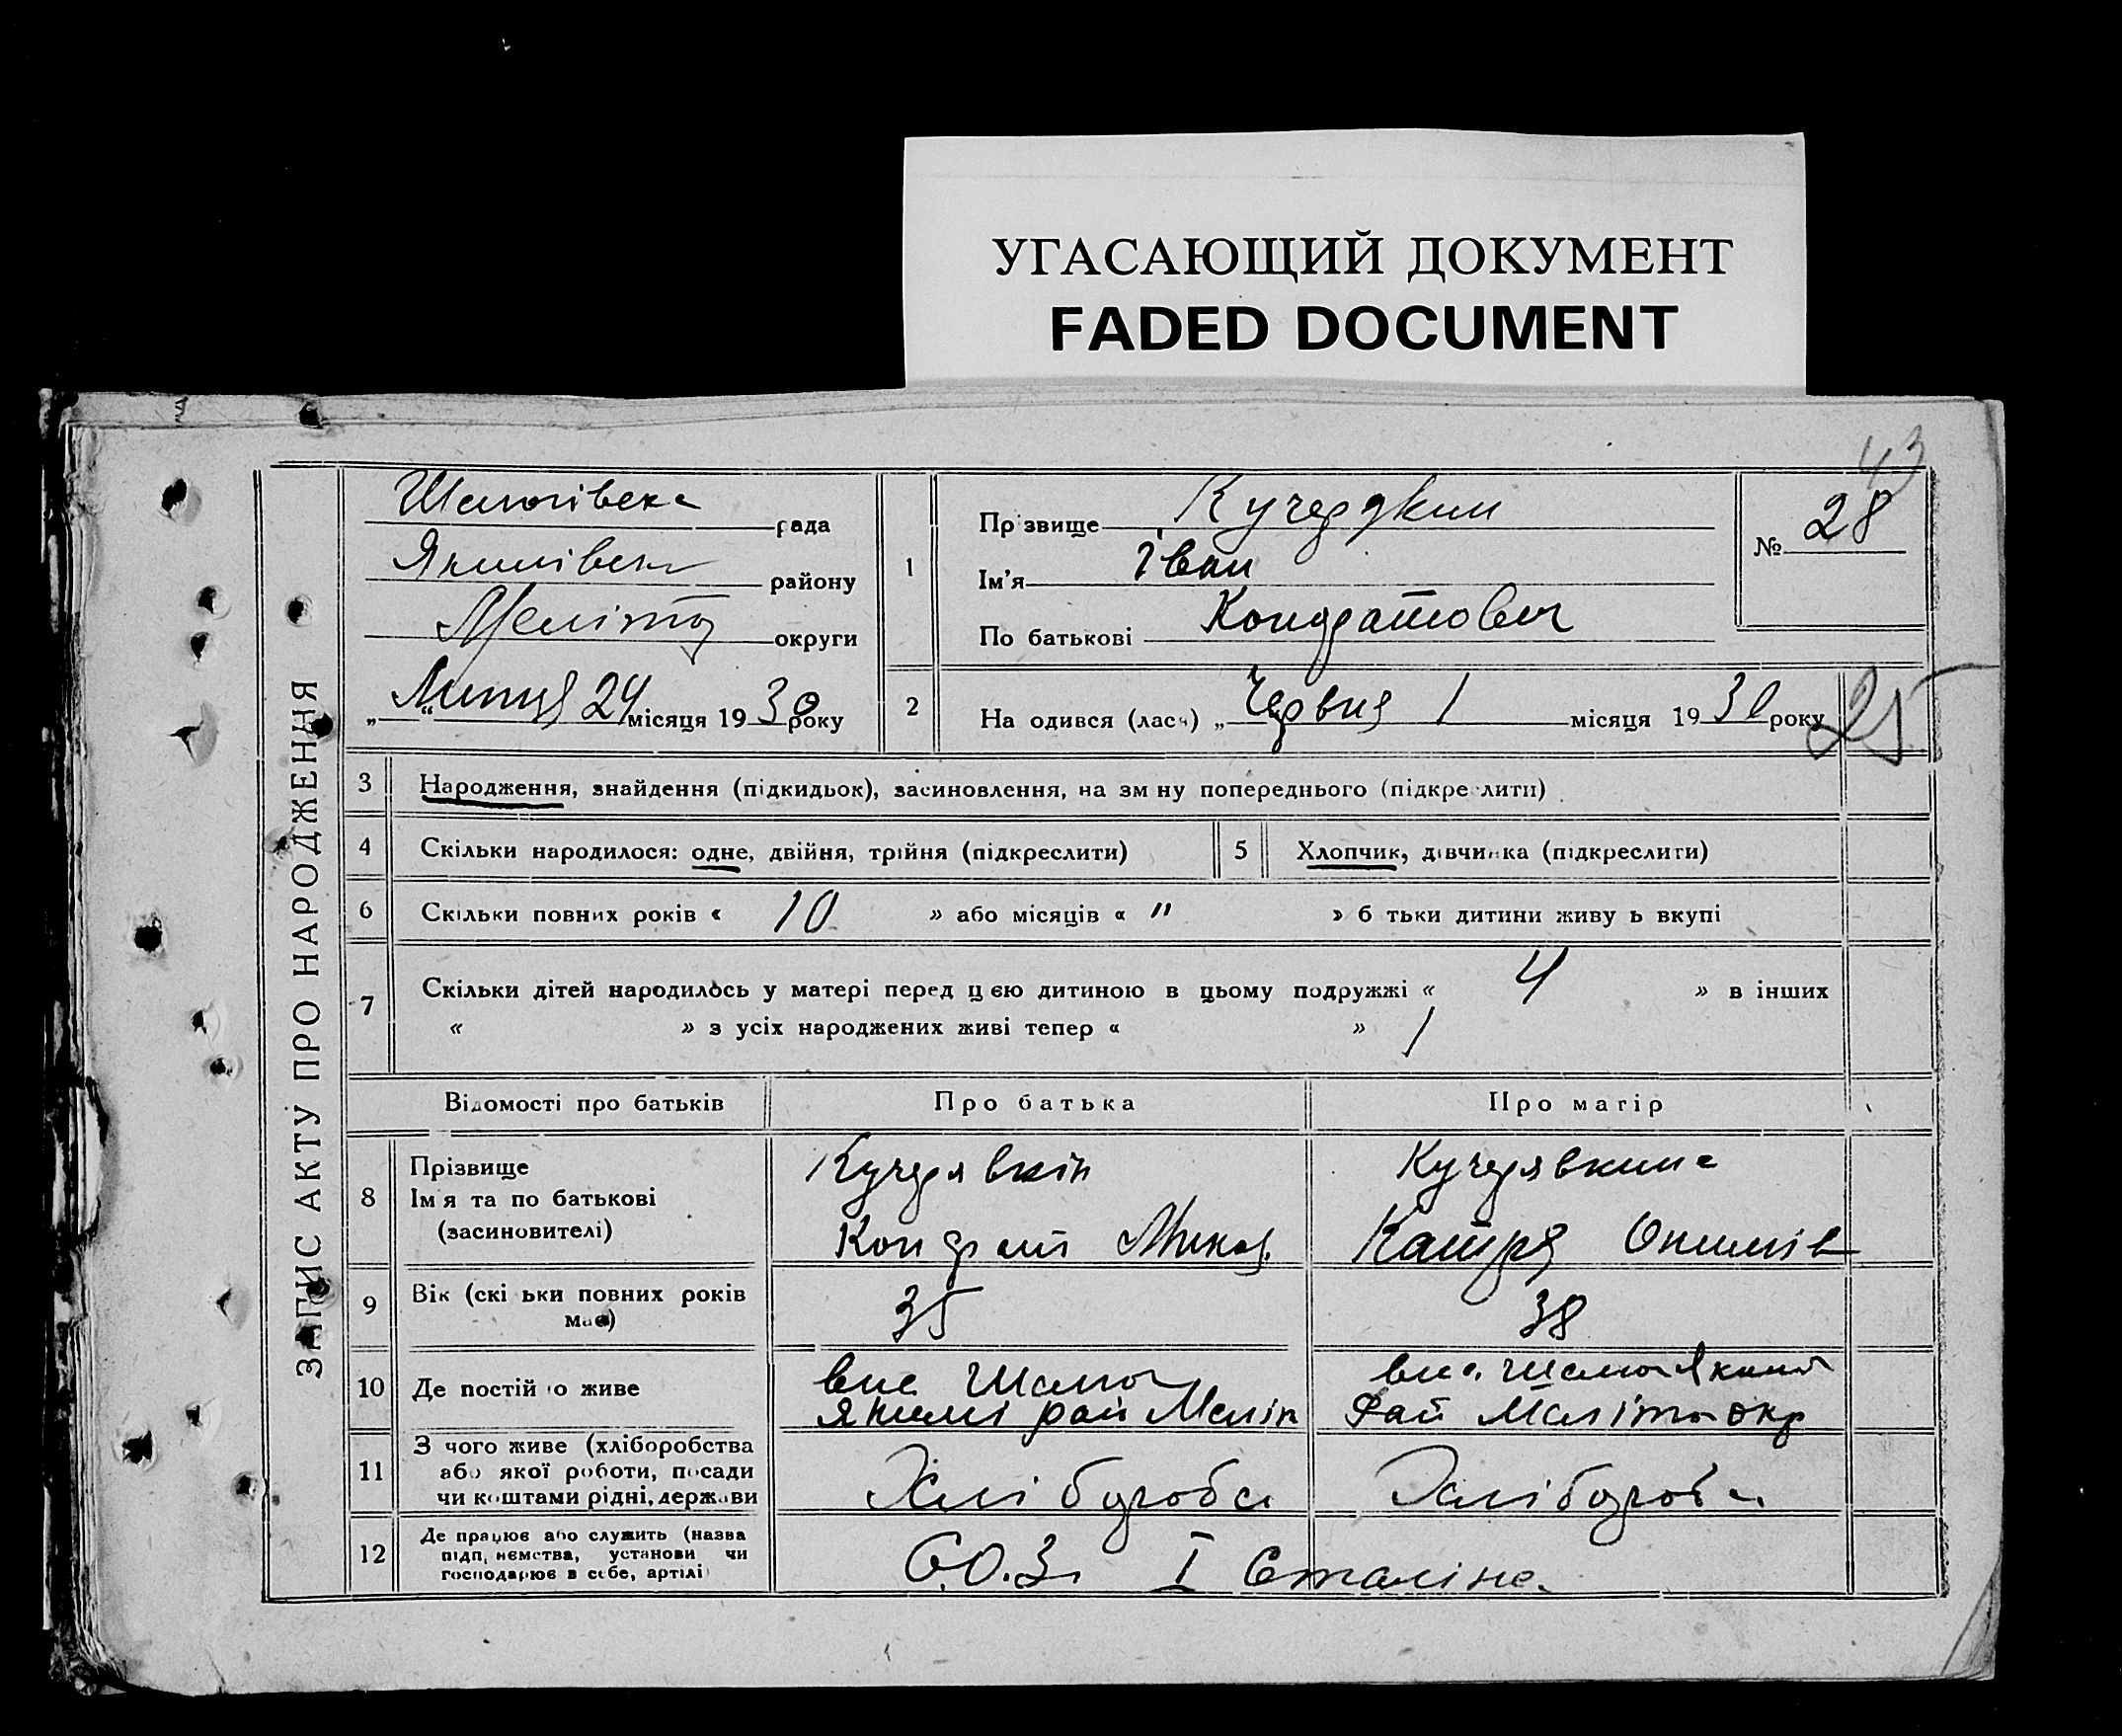 УГАСАЮЩИЙ ДОКУМЕНТ
FADED DOCUMENT
43
ЗАПИС АКТУ ПРО НАРОДЖЕННЯ
рада
району
Меліто округи
„ “ Липця 24 місяця 1930 року
1
Пр звище
Ім'я Іван
По батькові Кондратович
№ 28
2 На одився (лась) „ Червня 1 місяця 1930 року
25
3 Народження, знайдення (підкидьок), засиновлення, на зм ну попереднього (підкре лити)
4 Скільки народилося: одне, двійня, трійня (підкреслити)
5 Хлопчик, дівчинка (підкреслити)
6 Скільки повних років « 10 » або місяців « " » б тьки дитини живу ь вкупі
7 Скільки дітей народилось у матері перед цією дитиною в цьому подружжі « 4 » в інших
« » з усіх народжених живі тепер « » 1
Відомості про батьків Про батька Про матір
8 Прізвище
Ім я та по батькові
(засиновителі)
Кучерявкін
Кондрат Микол.
Кучерявкина
Катря
9 Вік (скі ьки повних років
має)
35 38
10 Де постій о живе
рай Меліт
рай Меліто окр
11 З чого живе (хліборобства
або якої роботи, посади
чи коштами рідні, держави
Хлібороба Хлібороба
12 Де працює або служить (назва
підп, иємства, установи чи
господарює в себе, артілі)
С.О.З. I Сталіна